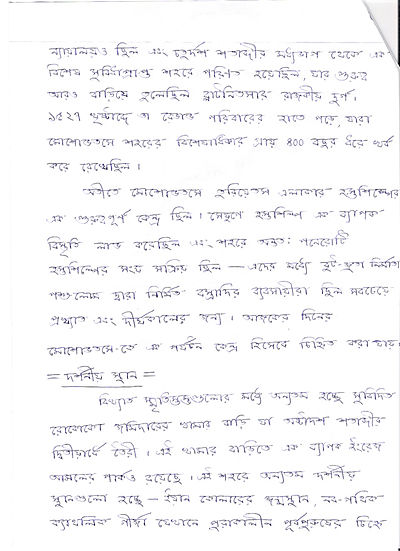 ন্যায়ালয়ও ছিল এবং চতুর্দশ শতাব্দীর মধ্যভাগ থেকে এক
বিশেষ সুবিধাপ্রাপ্ত শহরে পরিণত হয়েছিল, যার গুরুত্ব
আরও বাড়িয়ে তুলেছিল রাজকীয় দুর্গ।
১৫২৭ খৃষ্টাব্দে এ পরিবারের হাতে পড়ে, যারা
শহরের বিশেষাধিকার প্রায় ৪০০ বছর ধরে খর্ব
করে রেখেছিল।
অতীতে এলাকার হস্তশিল্পের
এক গুরুত্বপূর্ণ কেন্দ্র ছিল। সেযুগে হস্তশিল্প এক ব্যাপক
বিস্তৃতি লাভ করেছিল এবং শহরে অন্ততঃ পনেরোটি
হস্তশিল্পের সংঘ সক্রিয় ছিল — এদের মধ্যে বুট-জুতা নির্মাতা
পশুলোম দ্বারা নির্মিত বস্ত্রাদির ব্যবসায়ীরা ছিল সবচেয়ে
প্রখ্যাত এবং দীর্ঘকালের জন্য। আজকের দিনের
এক পর্যটন কেন্দ্র হিসেবে চিহ্নিত করা যায়।
= দর্শনীয় স্থান =
বিখ্যাত স্মৃতিস্তম্ভগুলোর মধ্যে অন্যতম হচ্ছে সুবিদিত
রোকোকো জমিদারের খামার বাড়ি যা অষ্টাদশ শতাব্দীর
দ্বিতীয়ার্ধে তৈরী। এই খামার বাড়িতে এক ব্যাপক ইংরেজ
আমলের পার্কও রয়েছে। এই শহরে অন্যতম দর্শনীয়
স্থানগুলো হচ্ছে — ইয়ান কোলারের জন্মস্থান, নব-গথিক
ক্যাথলিক গীর্জা যেখানে পুরাকালীন পূর্বপুরুষের চিহ্নে